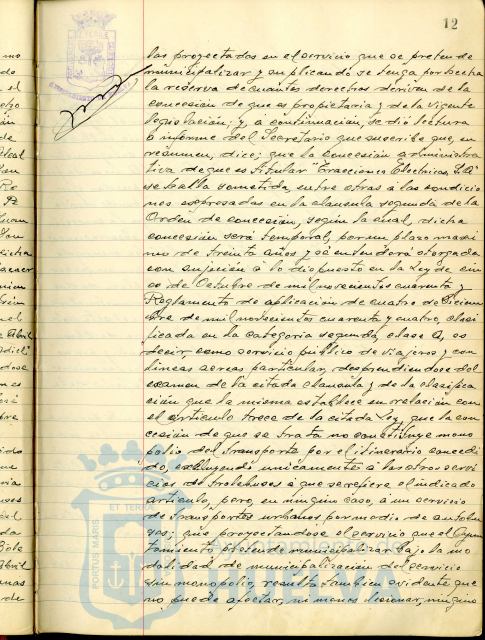 12
las proyectadas en el servicio que se pretende
municipalizar y suplicando se tenga por hecha
la reserva de cuantos derechos deriven de la
concesión de que es propietaria y de la vigente
legislación; y, a continuación, se dió lectura
a informe del Secretario que suscribe que, en
resúmen, dice; que la concesión administra
tiva de que es titular "Tracciones Electricas, S.A."
se halla sometida, entre otras a las condicio
nes expresadas en la clausula segunda de la
Orden de concesión, según la cual, dicha
concesión será temporal, por un plazo maxi
mo de treinta años y se entenderá otorgada
con sujeción a lo dispuesto en la Ley de cin
co de Octubre de mil novecientos cuarenta y
Reglamento de aplicación de cuatro de Diciem
bre de mil novecientos cuarenta y cuatro, clasi
ficada en la categoria segunda, clase A, es
decir, como servicio público de viajeros y con
lineas aereas particular, desprendiendose del
examen de la citada clausula y de la clasifica
ción que la misma establece en relación con
el articulo trece de la citada Ley, que la con
cesión de que se trata no constituye mono
polio del transporte por el itinerario concedi
do, excluyendo unicamente a los otros servi
cios de trolebuses a que se refiere el indicado
articulo, pero, en ningún caso, a un servicio
de transportes urbanos por medio de autobu
ses; que proyectandose el servicio que el Ayun
tamiento pretende municipalizar bajo la mo
dalidad de municipalización del servicio
sin monopolio, resulta tambien evidente que
no puede afectar, ni menos lesionar, ningúno
ET TERRA
PORTUS MARIS
Ayuntamiento de